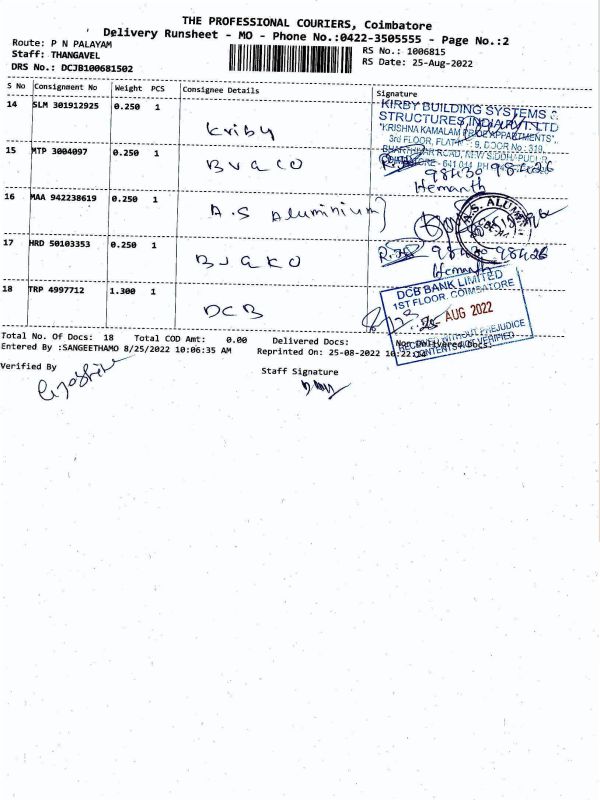 THE PROFESSIONAL COURIERS, Coimbatore
Delivery Runsheet - MO - Phone No.:0422-3505555 - Page No.:2
Route: P N PALAYAM
Staff: THANGAVEL
DRS No.: DCJB100681502
RS No.: 1006815
RS Date: 25-Aug-2022
S No Consignment No Weight PCS Consignee Details Signature
14 SLM 301912925 0.250 1 Kriby
KIRBY BUILDING SYSTEMS &
STRUCTURES INDIA PVT. LTD
"KRISHNA KAMALAM PRIDE APPARTMENTS",
3rd FLOOR, FLAT 9, DOOR No: 319,
15 MTP 3004097 0.250 1
98430 98426
Hemanth
16 MAA 942238619 0.250 1 A.S Aluminium
A.S. ALUMI
17 HRD 50103353 0.250 1
98430 98426
Hemanth
18 TRP 4997712 1.300 1 DCB
DCB BANK LIMITED
1ST FLOOR, COIMBATORE
25 AUG 2022
RECEIVED WITHOUT PREJUDICE
CONTENTS NOT VERIFIED
Total No. Of Docs: 18 Total COD Amt: 0.00 Delivered Docs: Non Delivered Docs:
Entered By :SANGEETHAMO 8/25/2022 10:06:35 AM Reprinted On: 25-08-2022
Verified By
Staff Signature